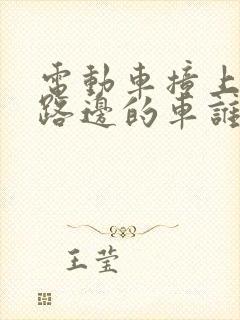 電動車撞上
路邊的車誰
王莹